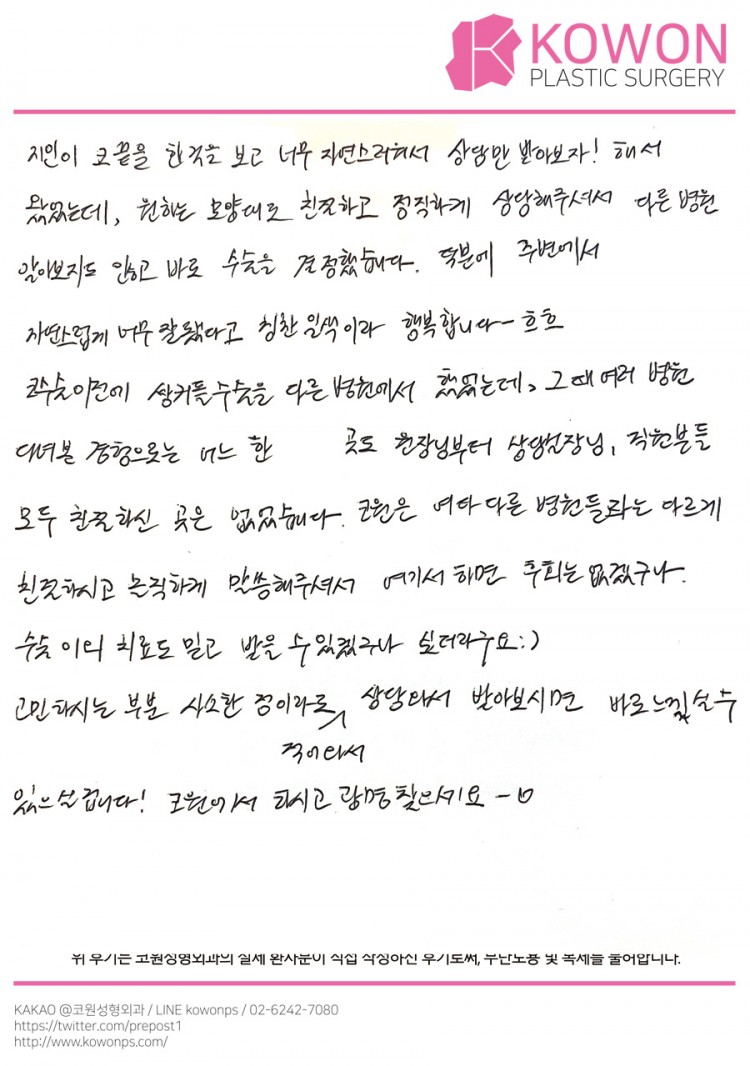 KOWON
PLASTIC SURGERY
지인이 코끝을 한것을 보고 너무 자연스러워서 상담만 받아보자! 해서
왔었는데, 원하는 모양대로 친절하고 정직하게 상담해주셔서 다른 병원
알아보지도 않고 바로 수술을 결정했습니다. 덕분에 주변에서
자연스럽게 너무 잘됐다고 칭찬 일색이라 행복합니다~ 흐흐
코수술이전에 쌍커풀수술을 다른 병원에서 했었는데, 그때 여러 병원
다녀본 경험으로는 어느 한 곳도 원장님부터 상담실장님, 직원분들
모두 친절하신 곳은 없었습니다. 코원은 여타 다른 병원들과는 다르게
친절하시고 솔직하게 말씀해주셔서 여기서 하면 후회는 없겠구나.
수술 이외 치료도 믿고 받을 수 있겠구나 싶더라구요:)
고민하시는 부분 사소한 점이라도 상담와서 받아보시면 바로 느낄실 수
적어와서
있으실 겁니다! 코원에서 하시고 광명 찾으세요
위 후기는 코원성형외과의 실제 환자분이 직접 작성하신 후기로써, 무단도용 및 복제를 불허합니다.
KAKAO @코원성형외과 / LINE kowonps / 02-6242-7080
https://twitter.com/prepost1
http://www.kowonps.com/